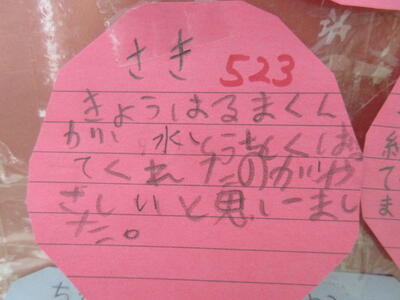 さき 523
きょうはるまくん
がい 水とうもくば
てくれたのがや
さしいと思いーまし
た。